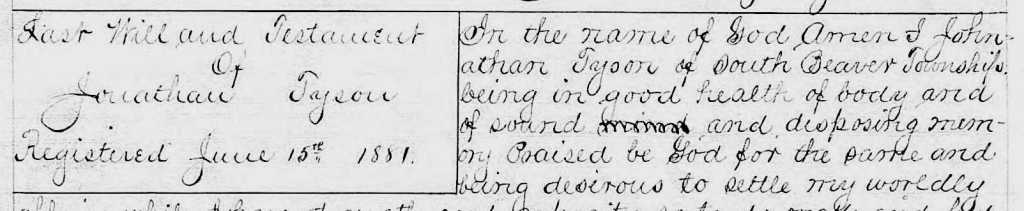 Last Will and Testament
Of
Jonathan Tyson
Registered June 15th 1881.
In the name of God Amen I John-
athan Tyson of South Beaver Township
being in good health of body and
of sound and disposing mem-
ory Praised be God for the same and
being desirous to settle my worldly